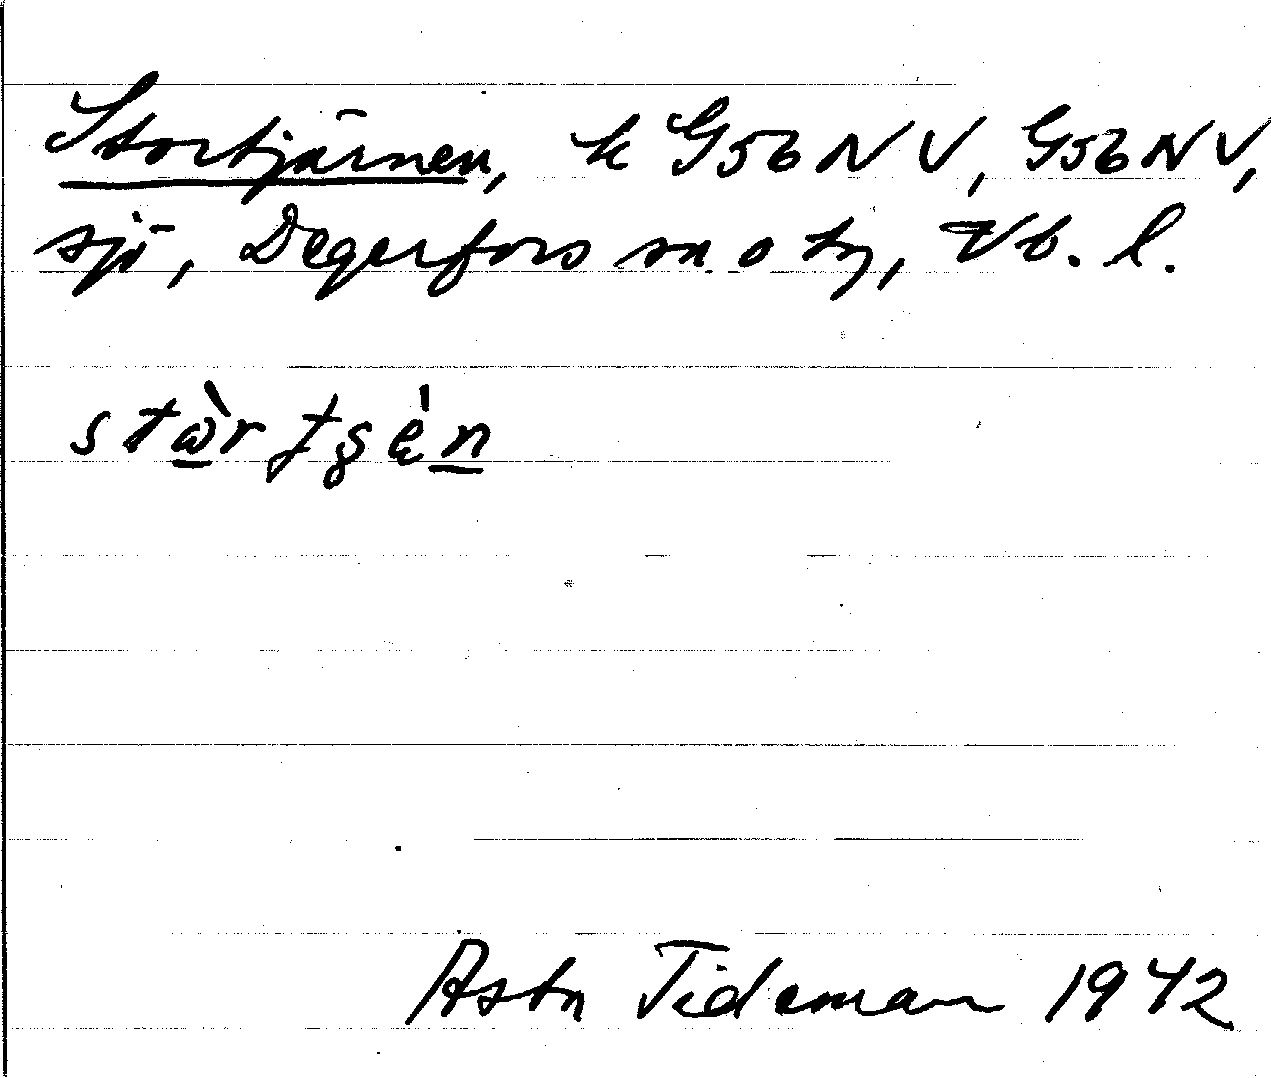 Stortjärnen, k G56NV, G56NV,
sjö, Degerfors sn o tg, Vb. l.
stὼrtʂèn
Astn Tideman 1942